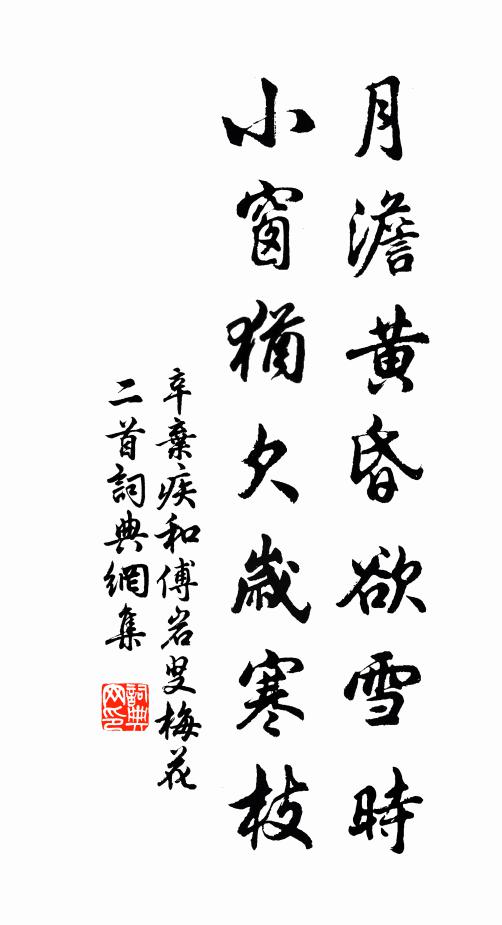 月澹黃昏欲雪時
小窗猶欠歲寒枝
辛棄疾和傅岩叟梅花
二首詞典網集
詞典
网印